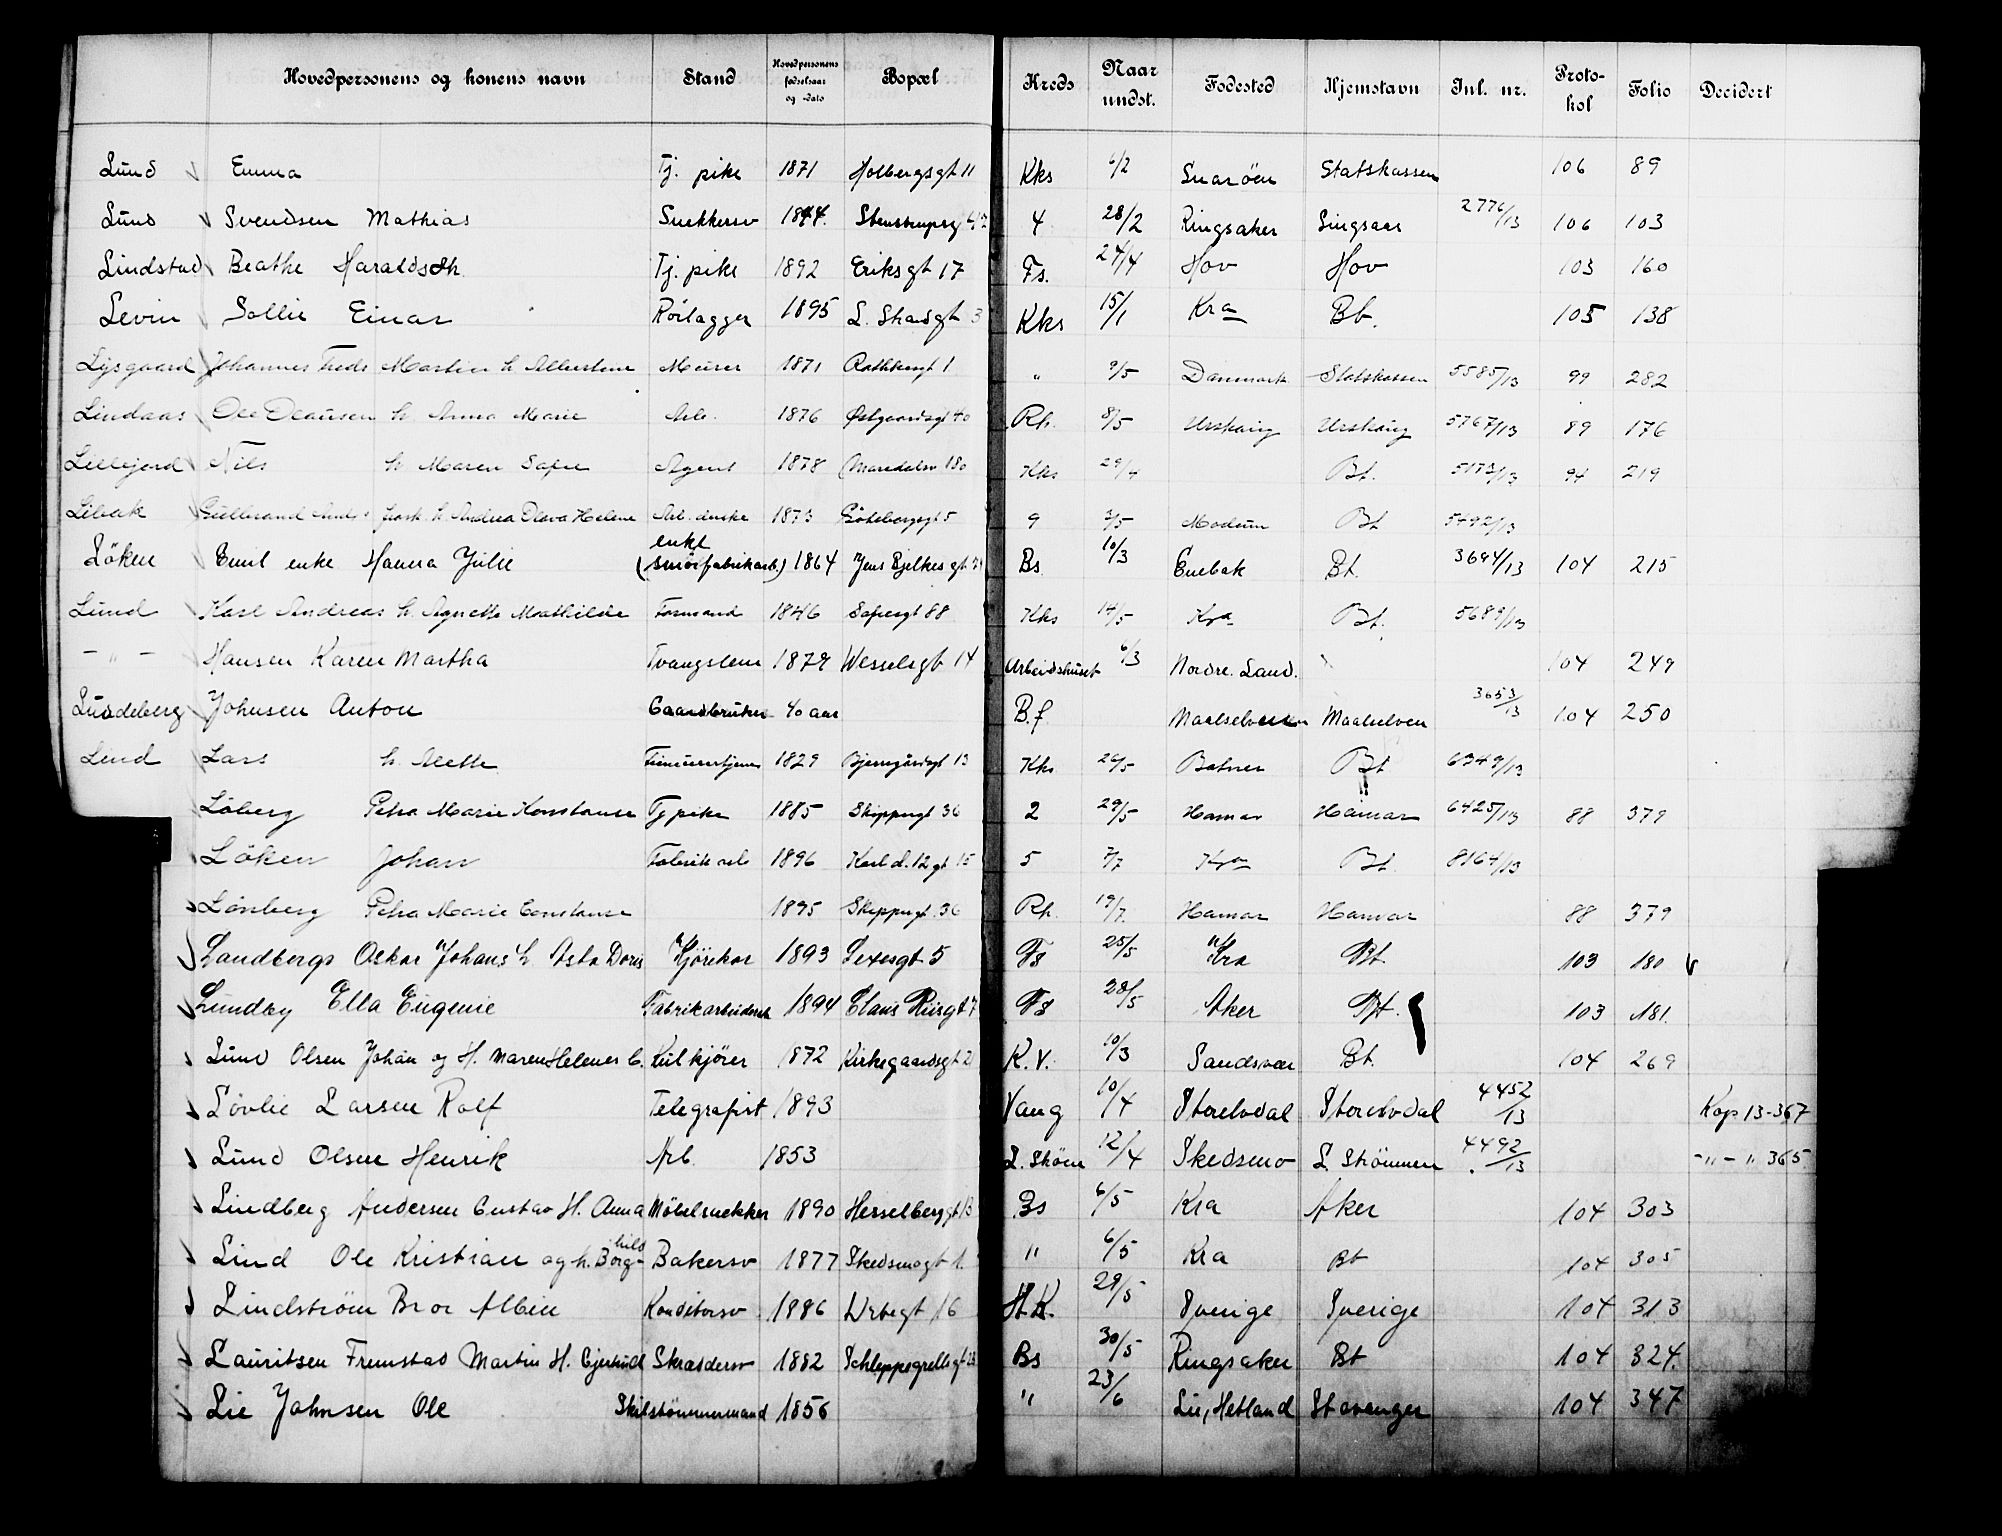 Hovedpersonens og konens navn Stand Hovedpersonens fødselsaar og -dato Bopæl Kreds Naar undst. Fødested Hjemstavn Jnl. nr. Protokol Folio Decidert
Lund Emma Tj. pike 1871 Holbergsgt 11 Kks 6/2 Snaröen Statskassen 106 89
Lund Svendsen Mathias Snekkersv 1844 4 28/2 Ringsaker Lingsaas 2776/13 106 103
Lindstad Beathe Haraldsdh. Tj. pike 1892 Eriksgt 17 Fs. 24/4 Hov Hov 103 160
Levin Sollie Einar Rörlægger 1895 L. Strandgt 3 Kks 15/1 Kra Bt. 105 138
Lysgaard Johannes Fredr Martin h Albertine Murer 1871 Rathkesgt 1 " 9/5 Danmark Statskassen 5585/13 99 282
Lindaas Ole Olausen h. Anna Marie Arb. 1876 Østgaardsgt 40 Rh. 8/5 Urskoug Urskoug 5767/13 89 176
Lillejord Nils h Maren Sofie Agent 1878 Maridalsv 180 Kks 29/4 Bt. 5173/13 94 219
Libak Gulbrand Ands h. Andrea Olava Helene Arb. enke 1873 Göteborggt 5 9 2/5 Modum Bt 5492/13
Löken Emil enke Hanna Julie enke (smörfabrikarb.) 1864 Jens Bjelkes gt Bs. 10/3 Enebak Bt. 3694/13 104 215
Lund Karl Andreas h. Agnethe Mathilde Formand 1846 Sofiesgt 88 Kks 14/5 Kra Bt. 5689/13
- " - Hansen Karen Martha Tvangslem 1879 Wesselsgt 14 Arbeidshuset 6/3 Nordre. Land. 104 249
Lundeberg Johnsen Anton Gaardbruker 40 aar B.f. Maalselven Maalselven 3653/13 104 250
Lind Lars h. Alette 1829 Bjerregårdsgt 13 Kks 26/5 Botner Bt 6349/13
Löberg Petra Marie Konstanse Tj pike 1885 Skippergt 36 2 29/5 Hamar Hamar 6425/13 88 379
Löken Johan Fabrik arb 1896 Karl d. 12 gt 15 5 7/7 Kra Bt 8164/13
Lönberg Petra Marie Constanse 1895 Skippergt. 36 Rh. 19/7. Hamar Hamar 88 379
Landbergs Oskar Johans h. Asta Doris Kjörekar 1893 Sexesgt 5 Fs 25/5 Kra Bt. 103 180 v
Lundby Ella Eugenie Fabrikarbeiderske 1894 Claus Riisgt 7 Fs 28/5 Aker Bt. 103 181.
Lund Olsen Johan og H. Maren Helenes C. Kulkjører 1872 Kirkegaardsgt 2 K.V. 10/3 Sandsvær Bt. 104 269
Lövlie Larsen Rolf Telegrafist 1893 Vang 10/4 Storelvdal Storelvdal 4452/13 Kop 13-367
Lund Olsen Henrik Arb. 1853 L. Ström 12/4 Skedsmo L. Strömmen 4492/13 - " - " 365
Lindberg Andersen Gustav H. Anna Möbelsnekker 1890 Hesselberggt 13 Bs 6/5 Kra Aker 104 303
Lind Ole Kristian og h. Borghild Bakersv 1877 Skedsmogt 1. " 6/5 Kra Bt 104 305
Lindström Bror Albin Konditorsv. 1886 Urtegt 16 H.K. 29/5 Sverige Sverige 104 313
Lauritsen Fremstad Martin H. Gjertrud Skraddersv 1882 Schleppegrellsgt 28 Bs 30/5 Ringsaker Bt 104 324.
Lie Johnsen Ole Skibstömmermand 1856 " 23/6 Lie, Hetland Stavanger 104 347